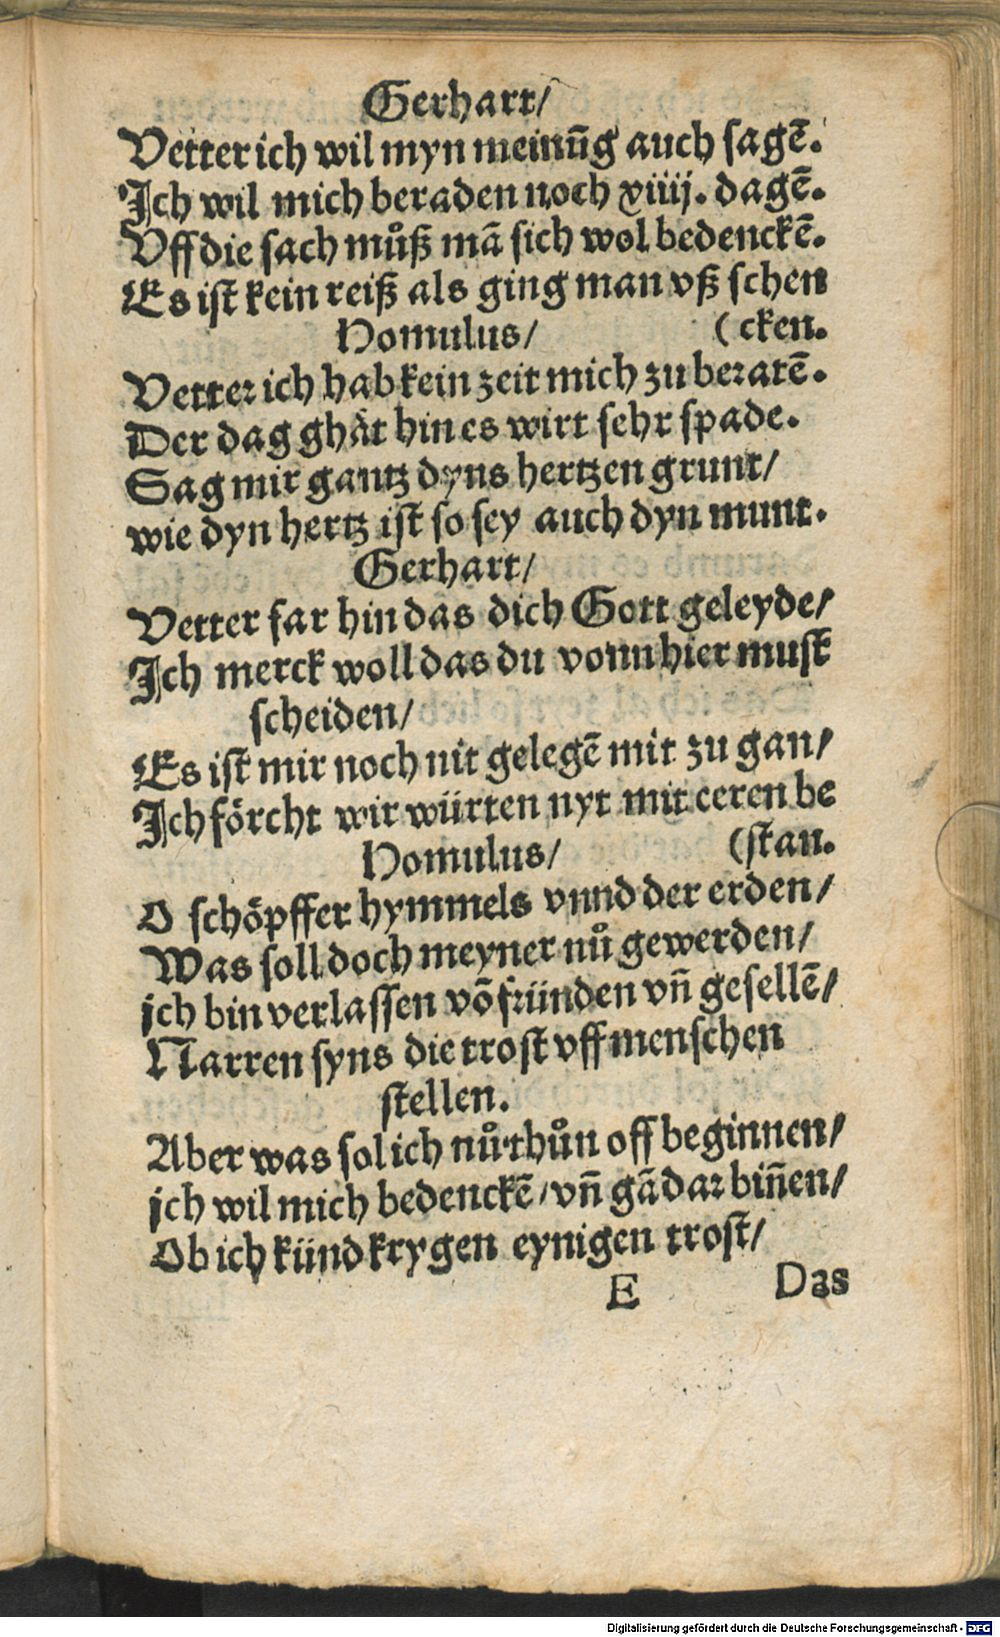 Gerhart/
Vetter ich wil myn meinūg auch sagē.
Ich wil mich beraden noch xiiij. dagē.
Vff die sach můß mā sich wol bedenckē.
Es ist kein reiß als ging man vß schen
Homulus/ (cken.
Vetter ich hab kein zeit mich zu beratē.
Der dag ghät hin es wirt sehr spade.
Sag mir gantz dyns hertzen grunt/
wie dyn hertz ist so sey auch dyn munt.
Gerhart/
Vetter far hin das dich Gott geleyde/
Ich merck woll das du vonn hier must
scheiden/
Es ist mir noch nit gelegē mit zu gan/
Ich förcht wir würten nyt mit ceren be
Homulus/ (stan.
O schöpffer hymmels vnnd der erden/
Was soll doch meyner nů gewerden/
ich bin verlassen vō fründen vn̄ gesellē/
Narren syns die trost vff menschen
stellen.
Aber was sol ich nů thůn off beginnen/
ich wil mich bedenckē/ vn̄ gā dar bin̄en/
Ob ich künd krygen eynigen trost/
E Das
Digitalisierung gefördert durch die Deutsche Forschungsgemeinschaft - DFG